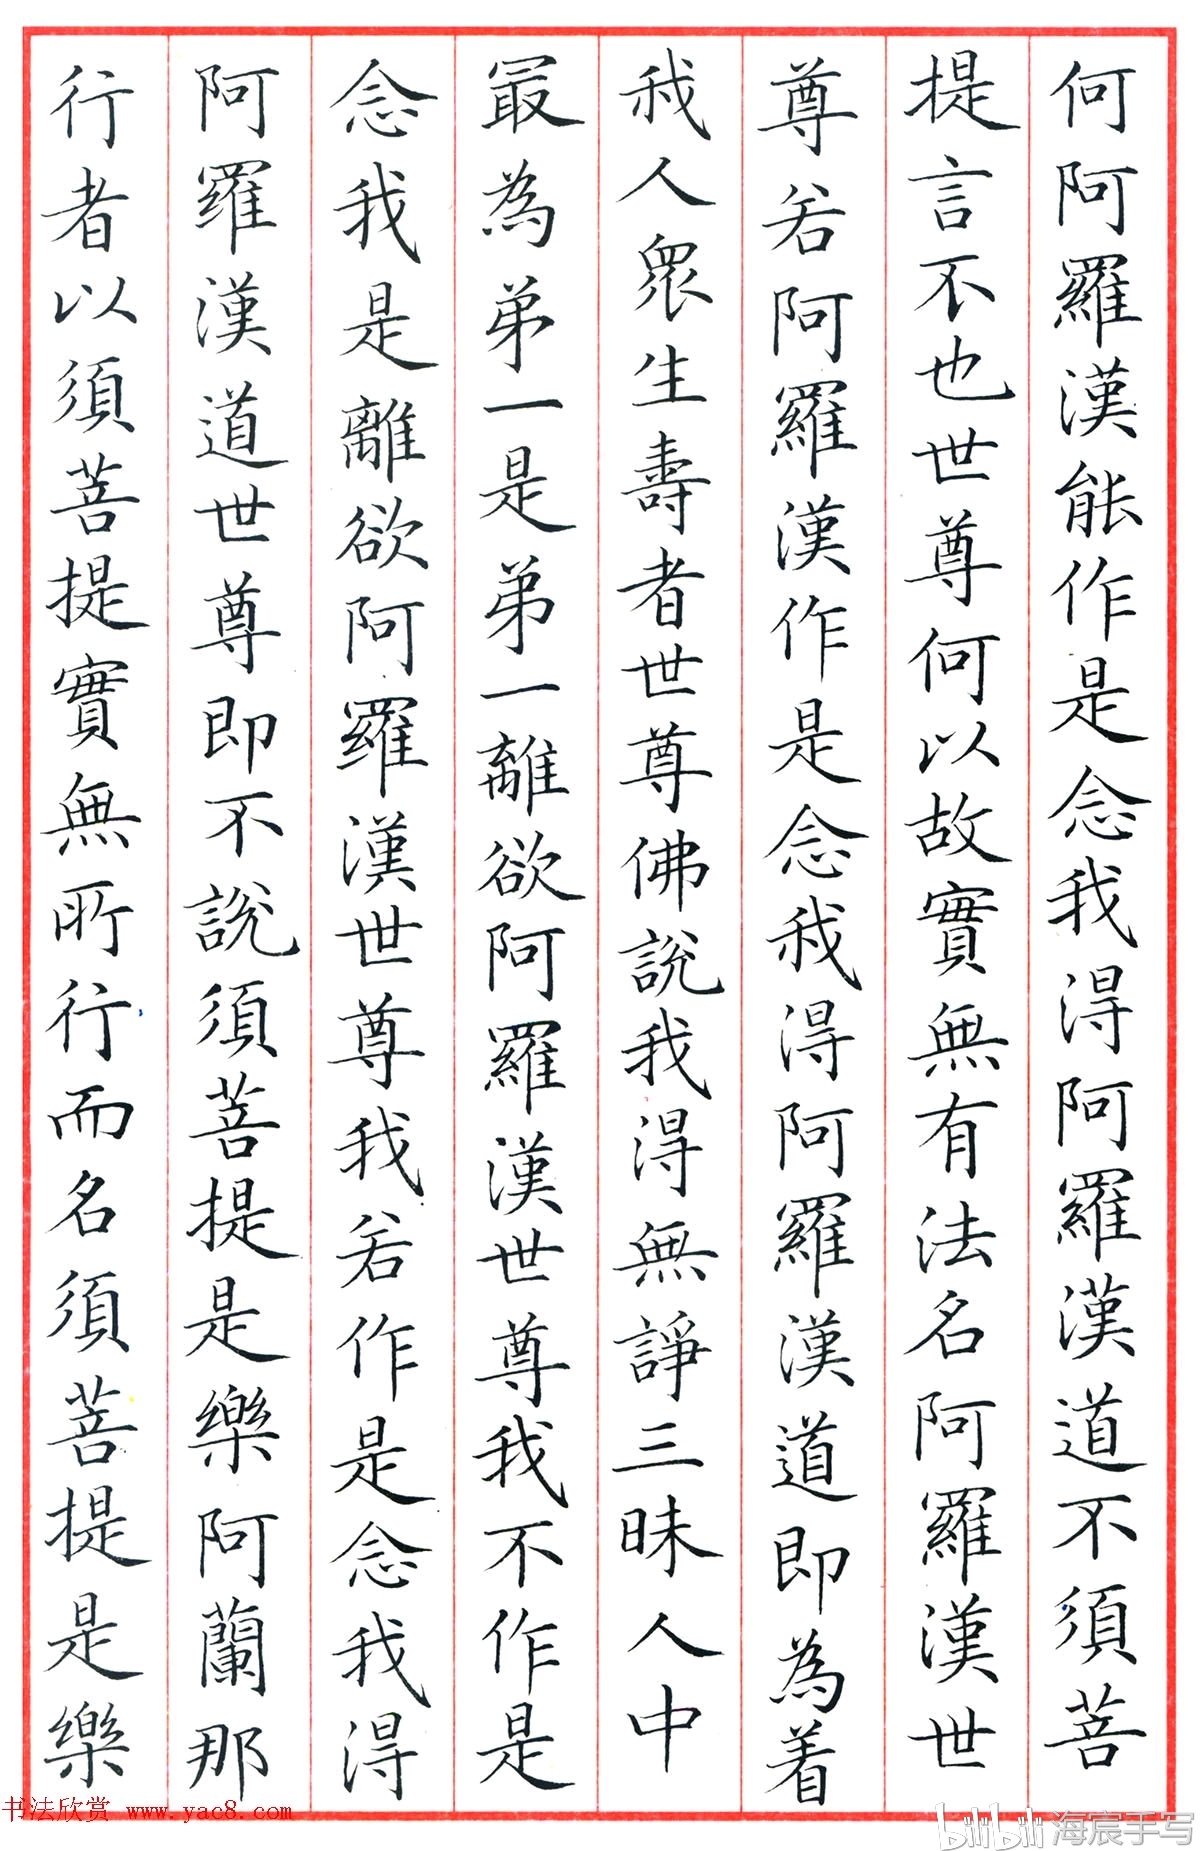 何阿羅漢能作是念我得阿羅漢道不須菩
提言不也世尊何以故實無有法名阿羅漢世
尊若阿羅漢作是念我得阿羅漢道即為着
我人眾生壽者世尊佛說我得無諍三昧人中
最為弟一是弟一離欲阿羅漢世尊我不作是
念我是離欲阿羅漢世尊我若作是念我得
阿羅漢道世尊即不說須菩提是樂阿蘭那
行者以須菩提實無所行而名須菩提是樂
书法欣赏 www.yac8.com
bilibili 海宸手写